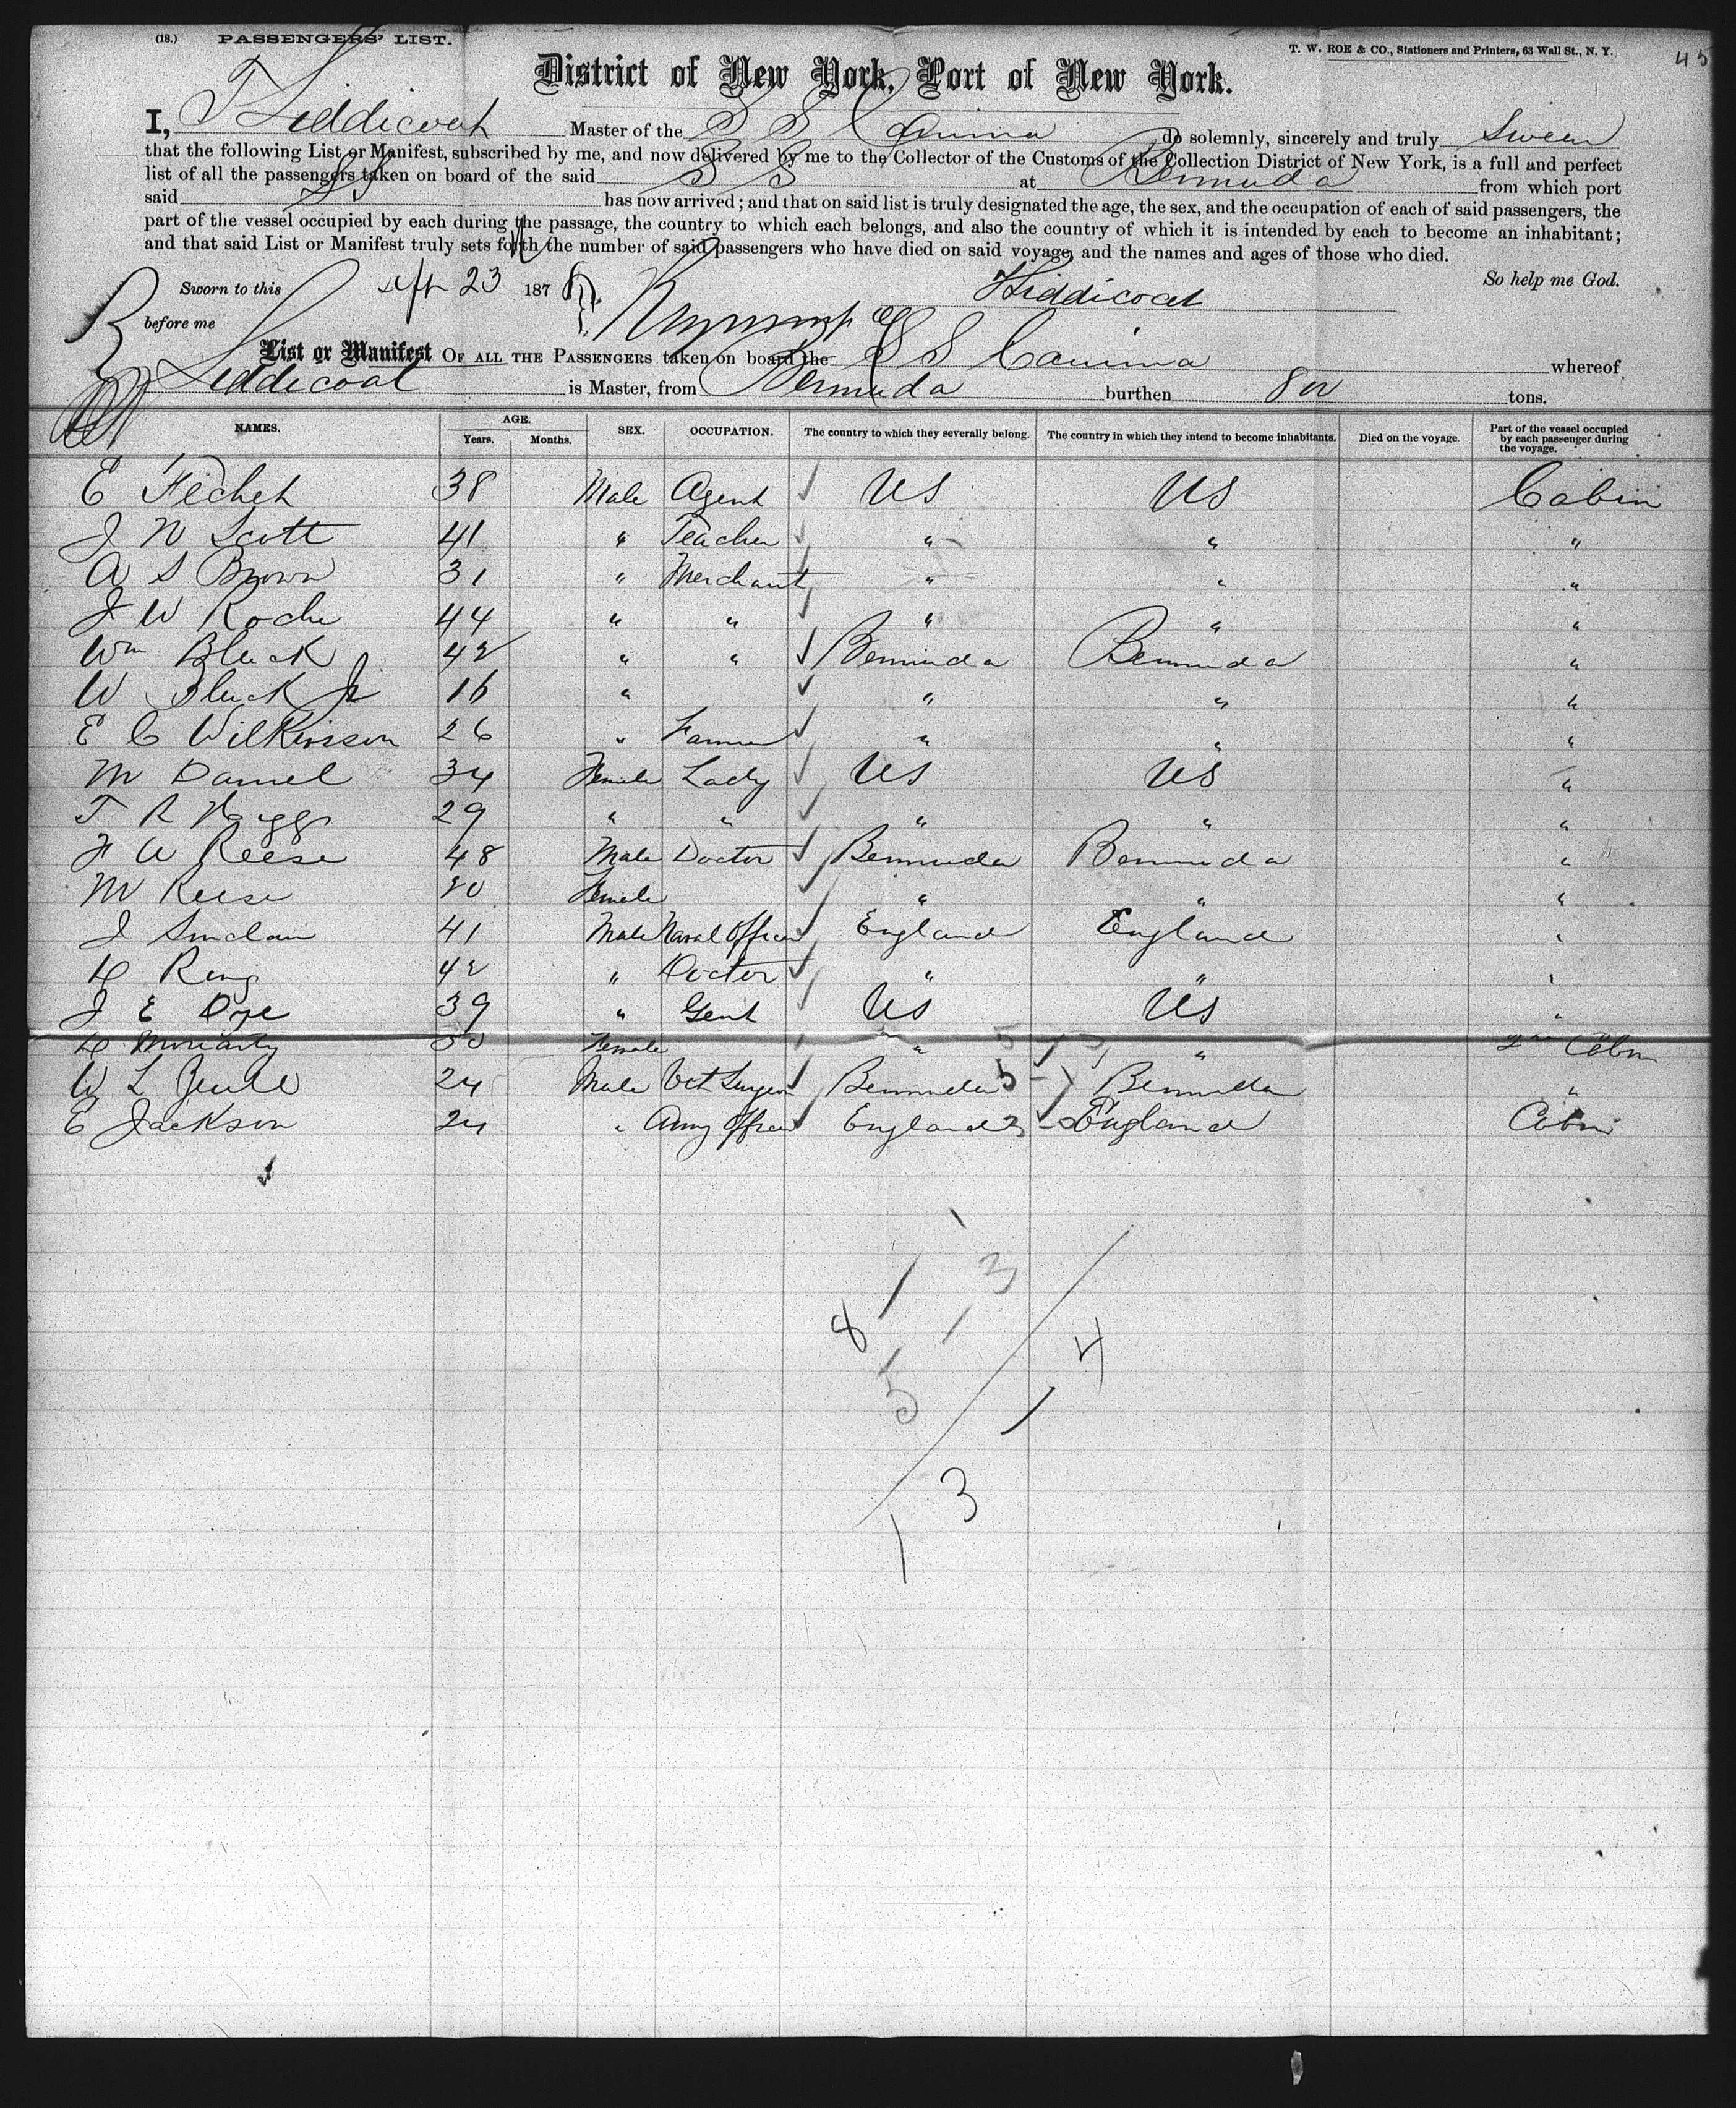 (18.) PASSENGERS' LIST.
T. W. ROE & CO., Stationers and Printers, 63 Wall St., N. Y.
45
District of New York, Port of New York.
I, T Liddicoat Master of the S S Canima do solemnly, sincerely and truly Swear
that the following List or Manifest, subscribed by me, and now delivered by me to the Collector of the Customs of the Collection District of New York, is a full and perfect
list of all the passengers taken on board of the said S S at Bermuda from which port
said S S has now arrived; and that on said list is truly designated the age, the sex, and the occupation of each of said passengers, the
part of the vessel occupied by each during the passage, the country to which each belongs, and also the country of which it is intended by each to become an inhabitant;
and that said List or Manifest truly sets forth the number of said passengers who have died on said voyage, and the names and ages of those who died.
So help me God.
Sworn to this Sept 23 187
Liddicoat
before me
List or Manifest OF ALL THE PASSENGERS taken on board the S S Canima whereof
Liddicoat is Master, from Bermuda burthen 800 tons.
NAMES. AGE. Years. Months. SEX. OCCUPATION. The country to which they severally belong. The country in which they intend to become inhabitants. Died on the voyage. Part of the vessel occupied by each passenger during the voyage.
E Fechet 38 Male Agent US US Cabin
J N Scott 41 " Teacher " " "
A S Brown 31 " Merchant " " "
J W Roche 44 " " " " "
Wm Bluck 42 " " Bermuda Bermuda "
W Bluck Jr 16 " " " "
E C Wilkinson 26 " Farmer " " "
M Daniel 34 Female Lady US US "
T R 29 " " " " "
F A Reese 48 Male Doctor Bermuda Bermuda "
M Reese 20 Female " " "
J Sinclair 41 Male Naval Officer England England "
H Ring 42 " Doctor " " "
J E Dye 39 " Gent US US "
H Moriarty 50 Female " " 2nd Cabin
W L 24 Male Vet Surgeon Bermuda Bermuda "
E Jackson 24 " Army Officer England England Cabin
3
8
5
4
3